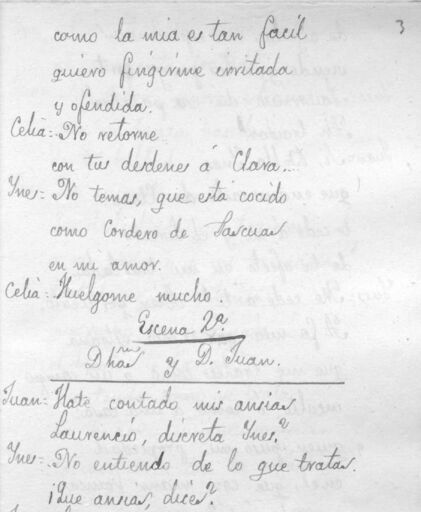 3
como la mia es tan facil
quiero fingirme irritada
y ofendida.
Celia: No retorne
con tus desdenes á Clara...
Ynes: No temas, que está cocido
como Cordero de Pascuas
en mi amor.
Celia: Huelgome mucho.
Escena 2ª
Dhas y D. Juan.
Juan: Hate contado mis ansias
Laurencio, discreta Ynes?
Ynes: No entiendo de lo que tratas.
¡Que ansias, dices?